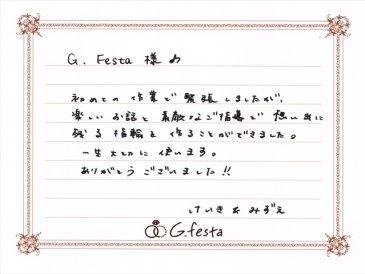 G. Festa 様 へ
初めての 作業で 緊張しましたが、
楽しい お話と 素敵なご指導で 思い出に
残る 指輪を 作ることができました。
一生大切に 使います。
ありがとう ございました!!
けいき & みずえ
G.festa